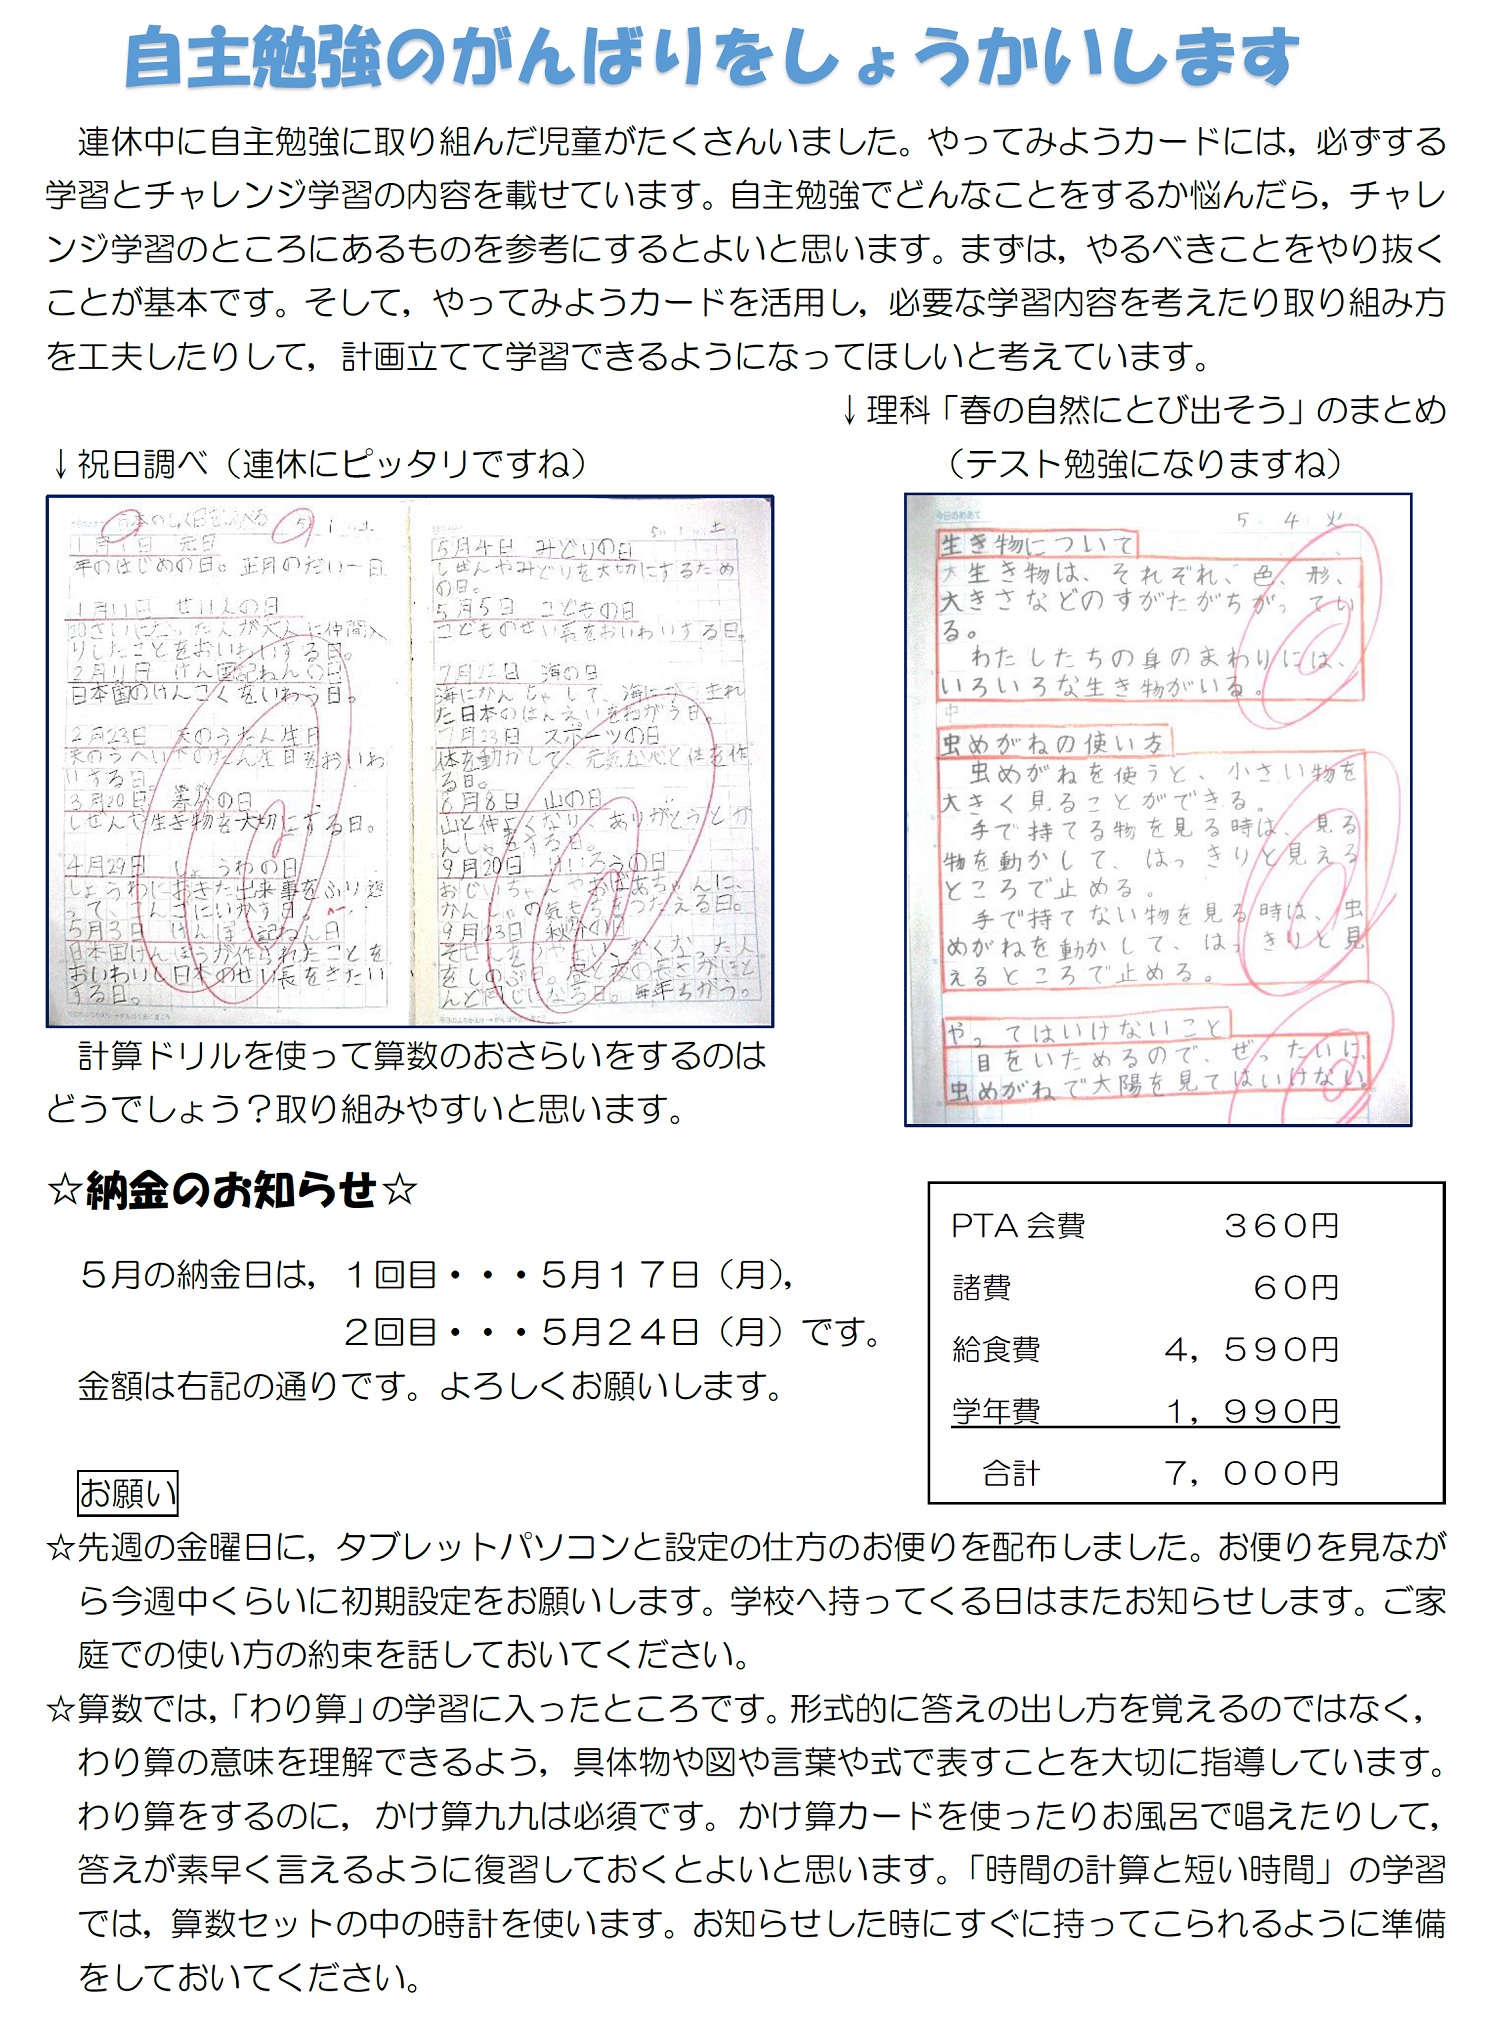 自主勉強のがんばりをしょうかいします
連休中に自主勉強に取り組んだ児童がたくさんいました。やってみようカードには，必ずする
学習とチャレンジ学習の内容を載せています。自主勉強でどんなことをするか悩んだら，チャレ
ンジ学習のところにあるものを参考にするとよいと思います。まずは，やるべきことをやり抜く
ことが基本です。そして，やってみようカードを活用し，必要な学習内容を考えたり取り組み方
を工夫したりして，計画立てて学習できるようになってほしいと考えています。
↓理科「春の自然にとび出そう」のまとめ
↓祝日調べ（連休にピッタリですね）
（テスト勉強になりますね）
日本のしゅく日をしらべる
1月1日 元日
年のはじめの日。正月のだい一日
1月11日 せい人の日
りしたことをおいわいする日。
2月11日 けん国記ねんの日
日本国のけんこくをいわう日。
2月23日 天のうたん生日
天のうへいかのたん生日をおいわ
いする日。
3月20日 春分の日
しぜんや生き物を大切にする日。
4月29日 しょうわの日
しょうわにおきた出来事をふり返
って、こんごにいかす日。
5月3日 けんぽう記ねん日
日本国けんぽうが作られたことを
おいわいし日本のせい長をきたい
する日。
5月4日 みどりの日
しぜんやみどりを大切にするため
の日。
5月5日 こどもの日
こどものせい長をおいわいする日。
7月22日 海の日
海にかんしゃして、海に
た日本のはんえいをねがう日。
7月23日 スポーツの日
体を動かして、元気な心と体を作
る日。
8月8日 山の日
山と仲よくなり、ありがとうとか
んしゃをする日。
9月20日 けいろうの日
おじいちゃんやおばあちゃんに、
かんしゃの気もちをつたえる日。
9月23日 秋分の日
そせんをうやまい、なくなった人
をしのぶ日。昼と夜の長さがほと
んど同じになる日。毎年ちがう。
今日のめあて
5 4 火
生き物について
生き物は、それぞれ、色、形、
大きさなどのすがたがちがってい
る。
わたしたちの身のまわりには、
いろいろな生き物がいる。
虫めがねの使い方
虫めがねを使うと、小さい物を
大きく見ることができる。
手で持てる物を見る時は、見る
物を動かして、はっきりと見える
ところで止める。
手で持てない物を見る時は、虫
めがねを動かして、はっきりと見
えるところで止める。
やってはいけないこと
目をいためるので、ぜったいに、
虫めがねで太陽を見てはいけない。
計算ドリルを使って算数のおさらいをするのは
どうでしょう？取り組みやすいと思います。
☆納金のお知らせ☆
５月の納金日は，１回目・・・５月１７日（月），
２回目・・・５月２４日（月）です。
金額は右記の通りです。よろしくお願いします。
PTA会費 ３６０円
諸費 ６０円
給食費 ４，５９０円
学年費 １，９９０円
合計 ７，０００円
お願い
☆先週の金曜日に，タブレットパソコンと設定の仕方のお便りを配布しました。お便りを見なが
ら今週中くらいに初期設定をお願いします。学校へ持ってくる日はまたお知らせします。ご家
庭での使い方の約束を話しておいてください。
☆算数では，「わり算」の学習に入ったところです。形式的に答えの出し方を覚えるのではなく，
わり算の意味を理解できるよう，具体物や図や言葉や式で表すことを大切に指導しています。
わり算をするのに，かけ算九九は必須です。かけ算カードを使ったりお風呂で唱えたりして，
答えが素早く言えるように復習しておくとよいと思います。「時間の計算と短い時間」の学習
では，算数セットの中の時計を使います。お知らせした時にすぐに持ってこられるように準備
をしておいてください。